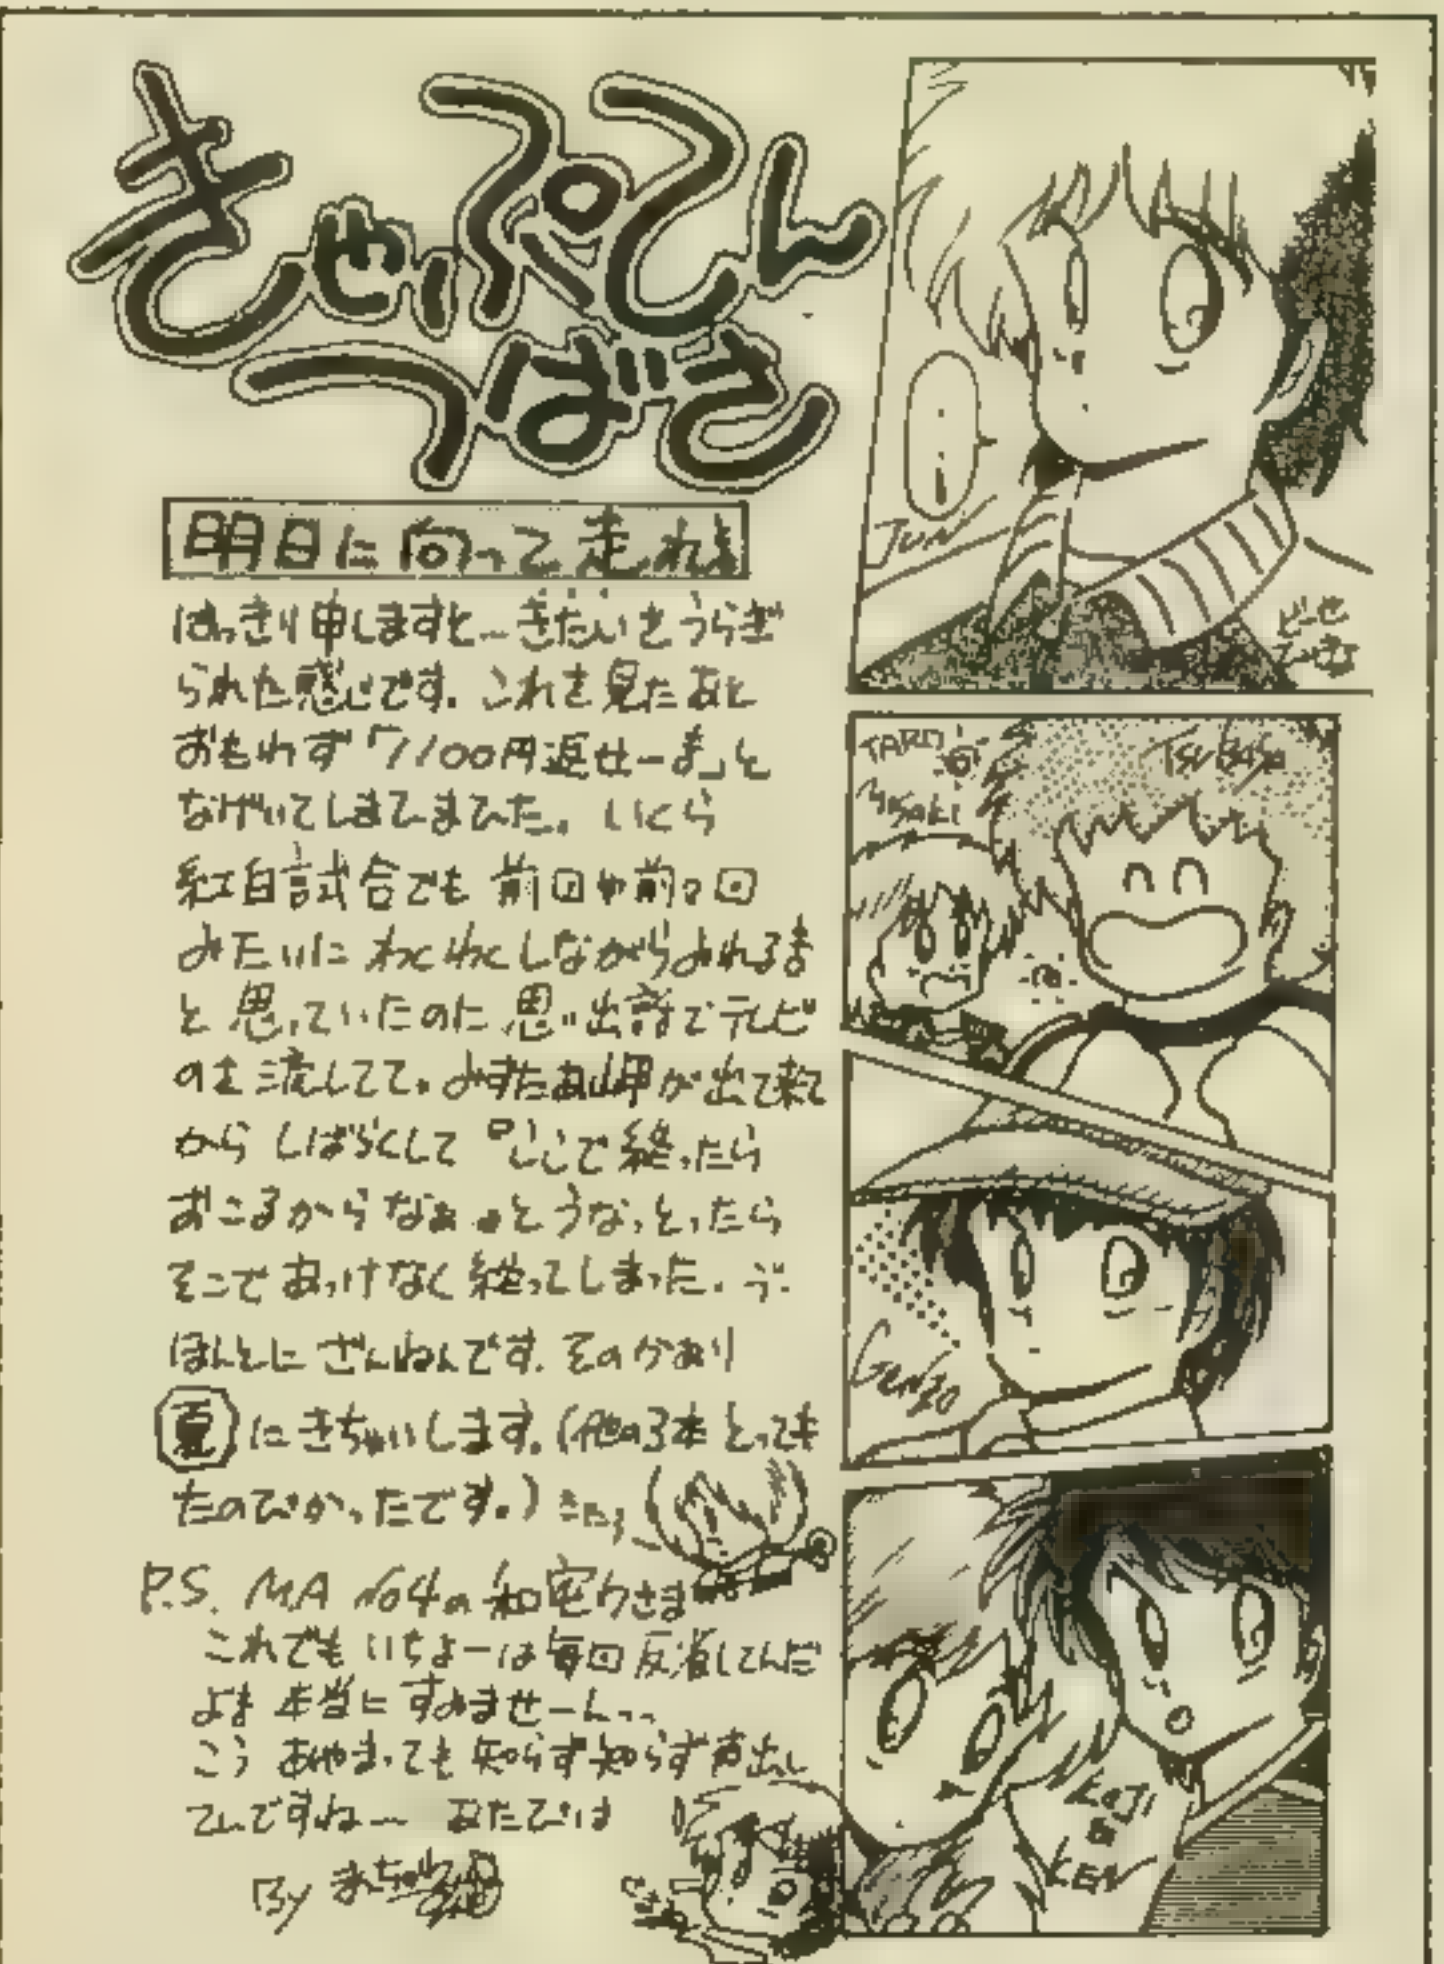 きゃぷてん
つばさ
明日に向って走れ
はっきり申しますと—きたいをうらぎ
られた感じです。これを見たあと
おもわず「1100円返せーま」と
なげいてしまひまひた。いくら
紅白試合でも前回や前々回
みたいにわくわくしながらみれるま
と思っていたのに思い出話でテレビ
のを流してて。岬が出て来て
からしばらくして『ここで終ったら
おこるからなぁ』とうなっとったら
そこであっけなく終ってしまった。
ほんとにざんねんです。そのかわり
夏にきちゃいします。(他の3本とっても
たのぴかったです。)
P.S. MA No4の和宏クさま
これでもいちよーは毎回反省してんだ
よま 本当にすみませーん
こうあやまっても知らず知らず声出し
てんですねー
By
JUN
TARO
Misaki
TSUBASA
GENZO
KOJI
&
KEN